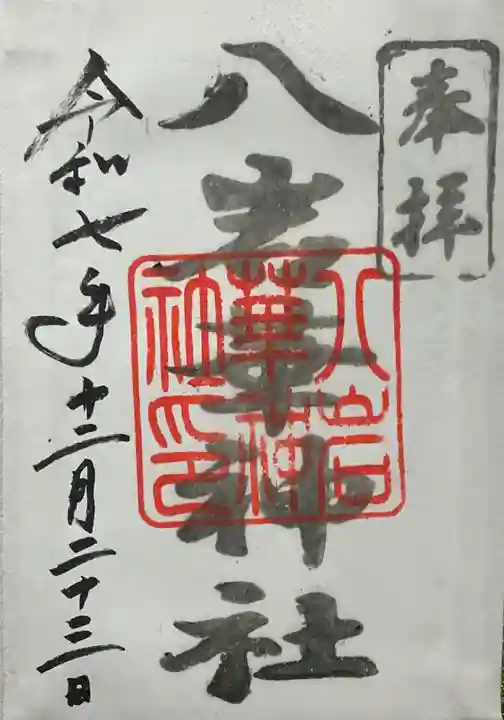 奉拝
八岩華神社
八岩華神社印
令和七年十二月二十三日